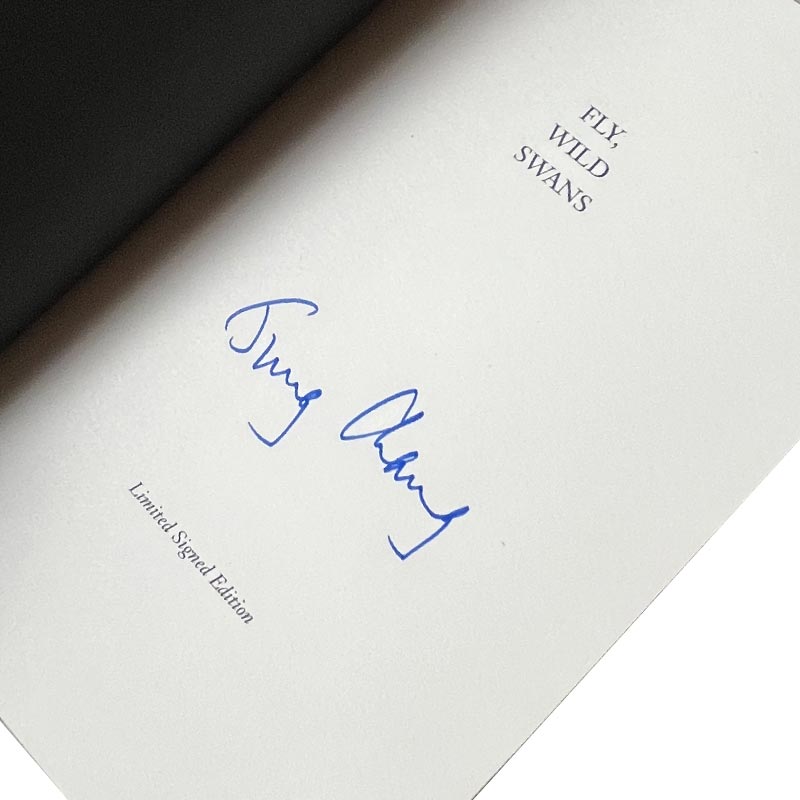 FLY,
WILD
SWANS
Jung Chang
Limited Signed Edition